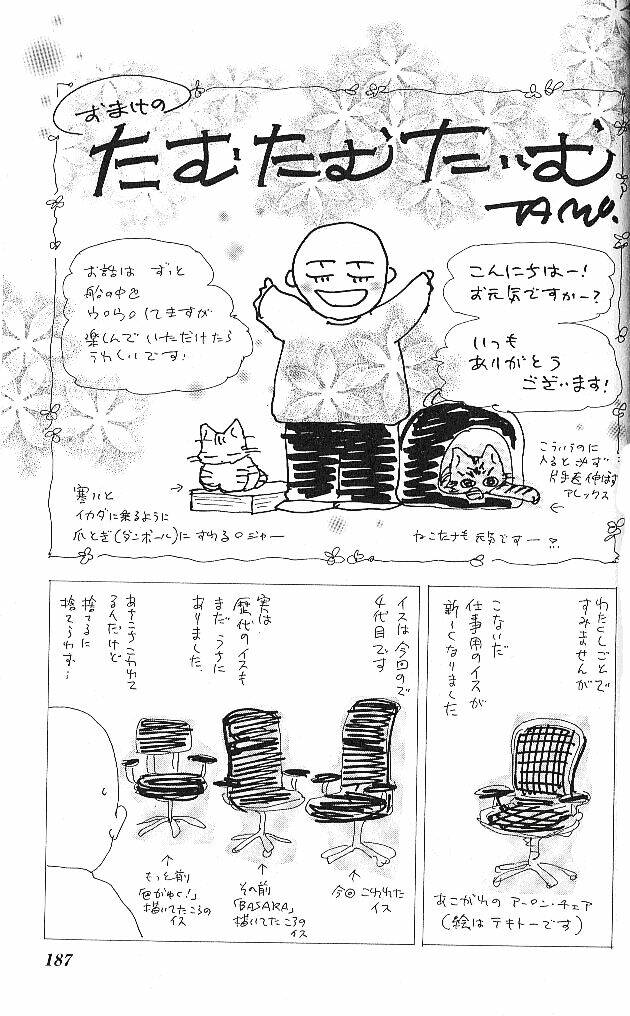 おまけの
たむたむたいむ
TAMU.
こんにちはー!
お元気ですかー?
いつも
ありがとう
ございます!
お話は ずっと
船の中で
ウロウロしてますが
楽しんで いただけたら
うれしいです!
こういうのに
入ると 必ず
片手を伸ばす
アレックス
寒いと
イカダに乗るように
爪とぎ(ダンボール)に すわるロジャー
ねこたちも 元気ですー
わたくしごとで
すみませんが
こないだ
仕事用のイスが
新しくなりました
あこがれの アーロン・チェア
(絵は テキトーです)
イスは今回ので
4代目です
実は
歴代のイスも
まだ うちに
ありました
あちこちこわれて
るんだけど
捨てるに
捨てられず…
今回 こわれた
イス
その前
「BASARA」
描いてたころの
イス
もっと前
描いてたころの
イス
187